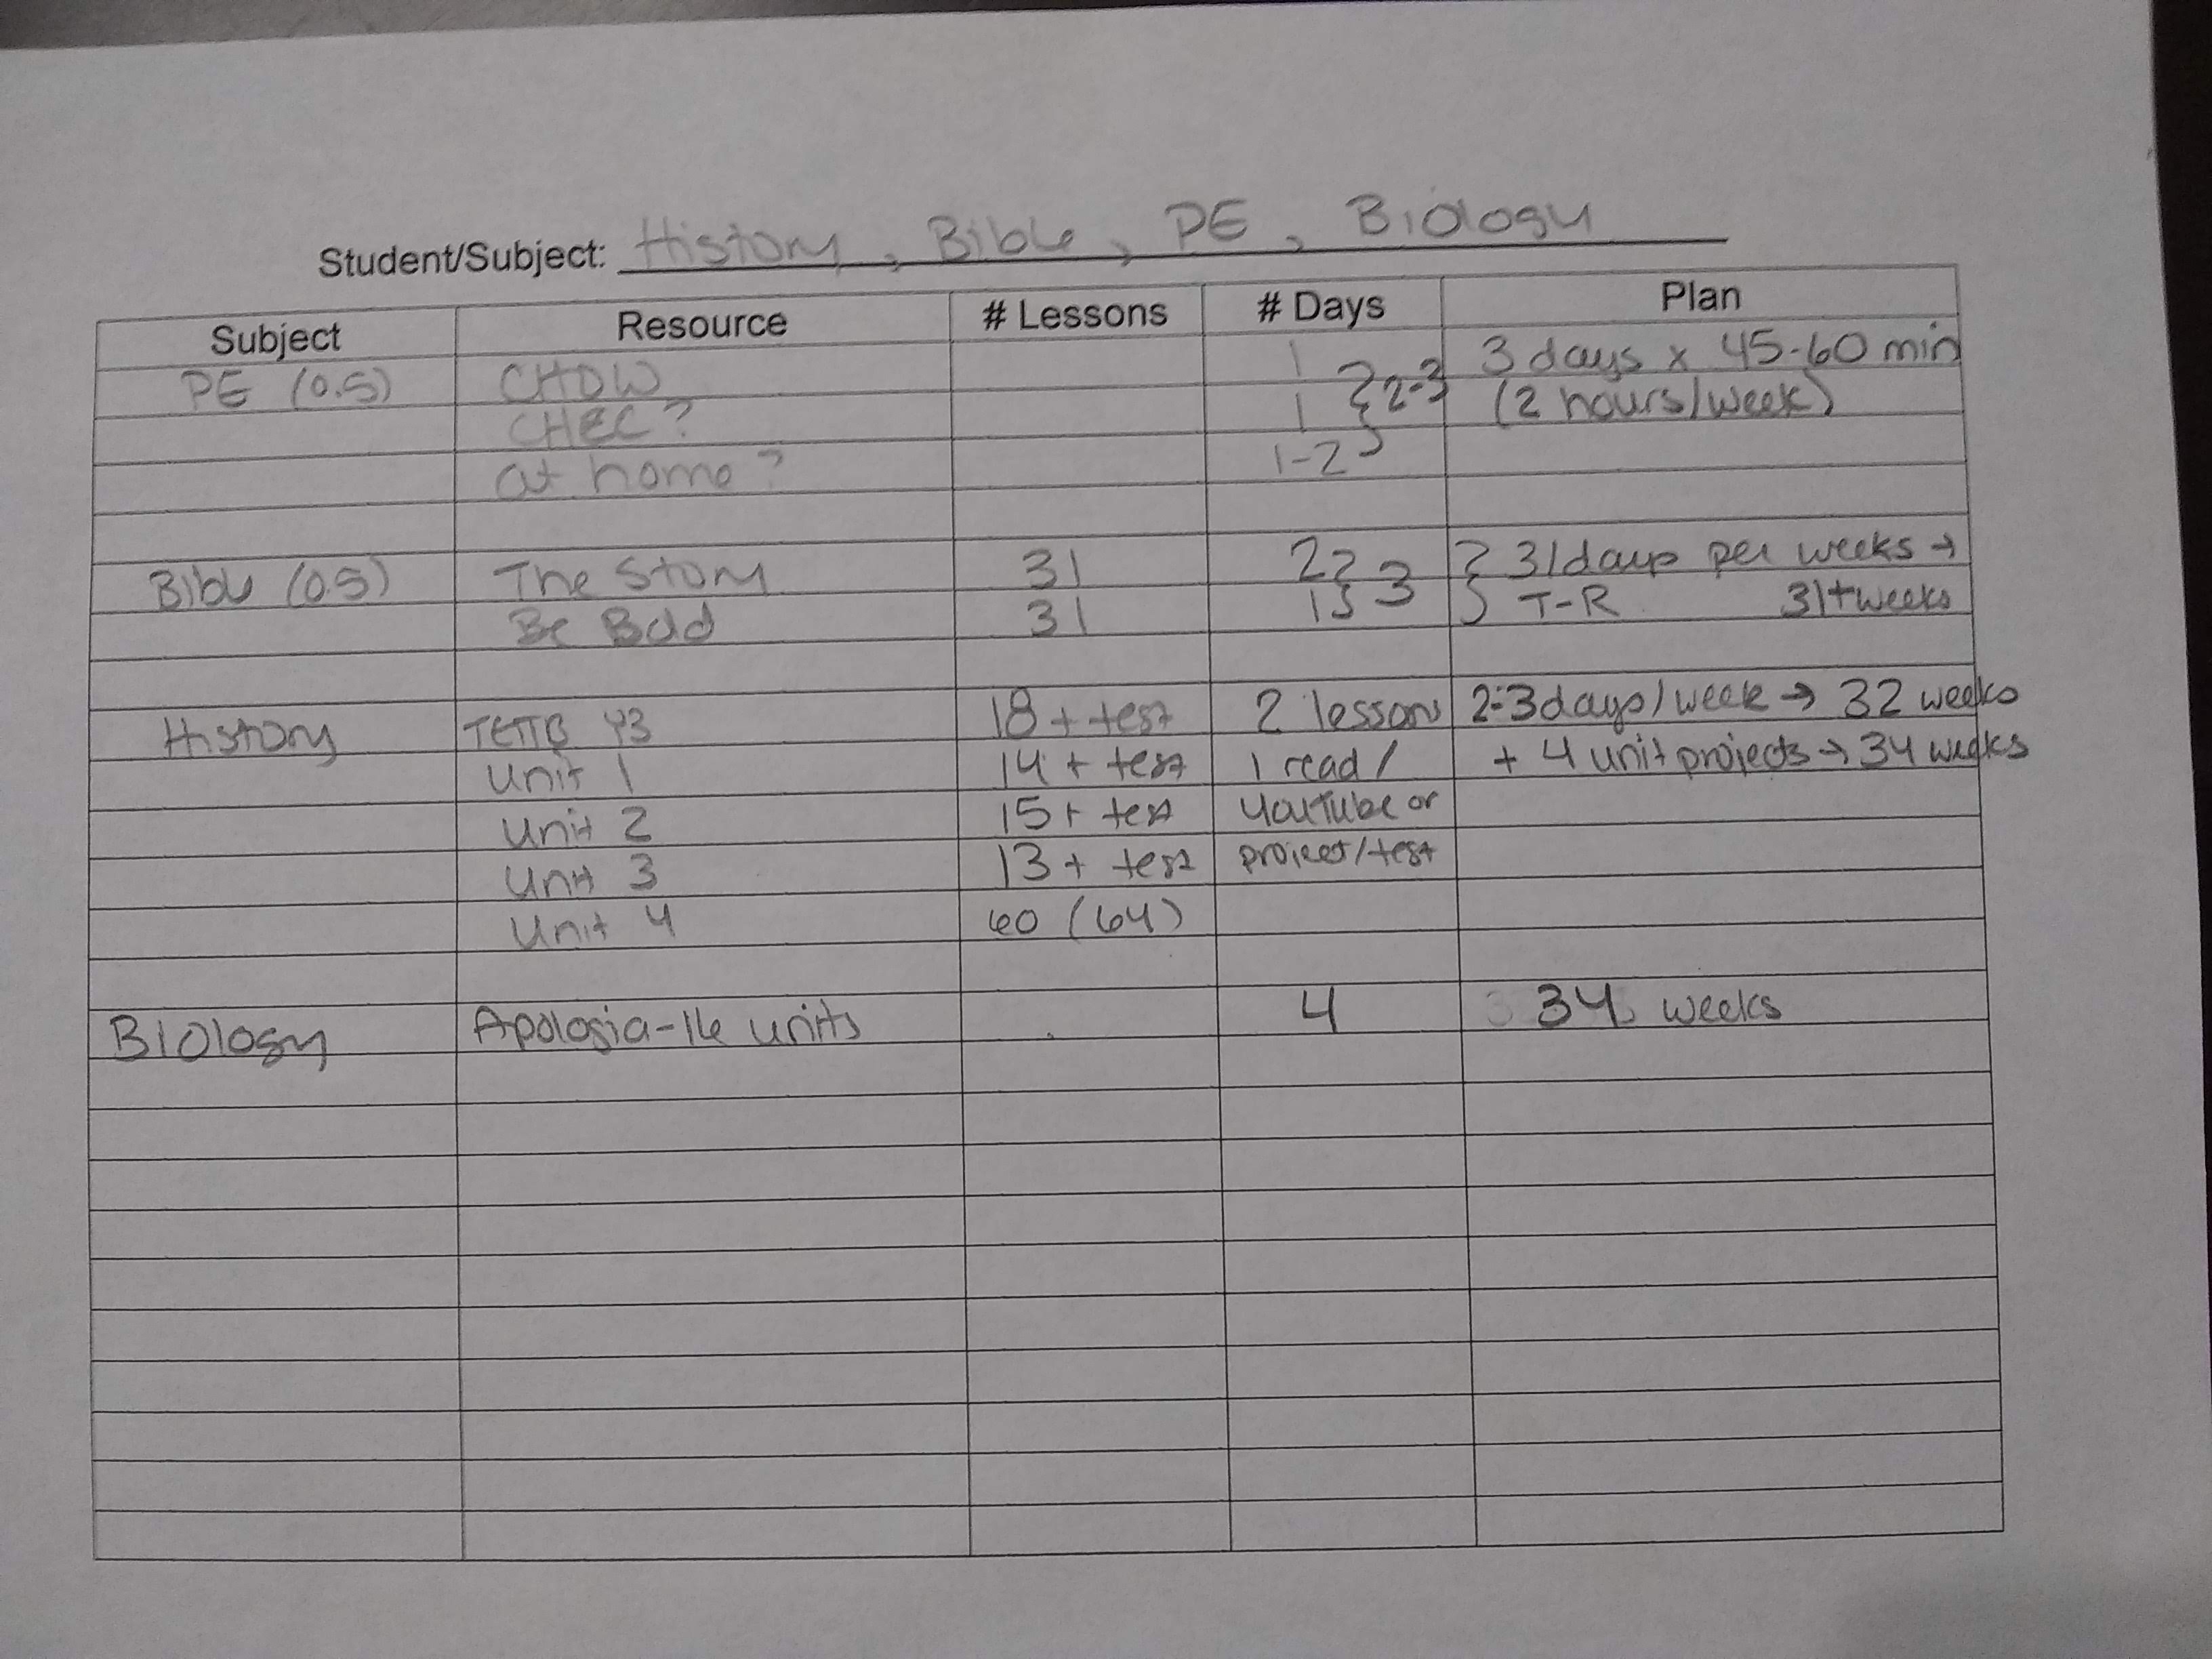 Student/Subject: History, Bible, PE, Biology
Subject Resource # Lessons # Days Plan
PE (0.5) CHDW 1 3 days x 45-60 min
CHEC? 1 } 2-3 (2 hours/week)
at home? 1-2
Bible (0.5) The Story 31 2 } 3 } 3/days per weeks →
Be Bold 31 1 T-R 31+weeks
History TGTTB Y3 18 + test 2 lessons 2-3 days/week → 32 weeks
Unit 1 14 + test 1 read/ + 4 unit projects → 34 weeks
Unit 2 15 + test YouTube or
Unit 3 13 + test project/test
Unit 4 60 (64)
Biology Apologia-16 units 4 34 weeks